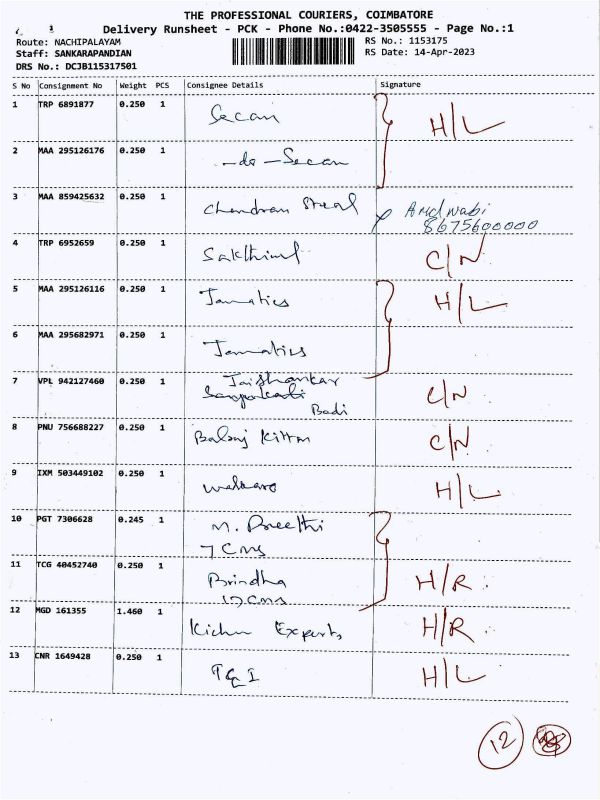 THE PROFESSIONAL COURIERS, COIMBATORE
Delivery Runsheet - PCK - Phone No.:0422-3505555 - Page No.:1
Route: NACHIPALAYAM
RS No.: 1153175
Staff: SANKARAPANDIAN
RS Date: 14-Apr-2023
DRS No.: DCJB115317501
S No Consignment No Weight PCS Consignee Details Signature
1 TRP 6891877 0.250 1 Secan H/L
2 MAA 295126176 0.250 1 -do- Secan
3 MAA 859425632 0.250 1 Chendran Steal
8675600000
4 TRP 6952659 0.250 1 C/N
5 MAA 295126116 0.250 1 Jamatics H/L
6 MAA 295682971 0.250 1 Jamatics
7 VPL 942127460 0.250 1 Jaishankar C/N
Badi
8 PNU 756688227 0.250 1 C/N
9 IXM 503449102 0.250 1 H/L
10 PGT 7306628 0.245 1 M. Preethi
7 Cms
11 TCG 40452740 0.250 1 Brindha H/R
Cms
12 MGD 161355 1.460 1 Exports H/R
13 CNR 1649428 0.250 1 H/L
12